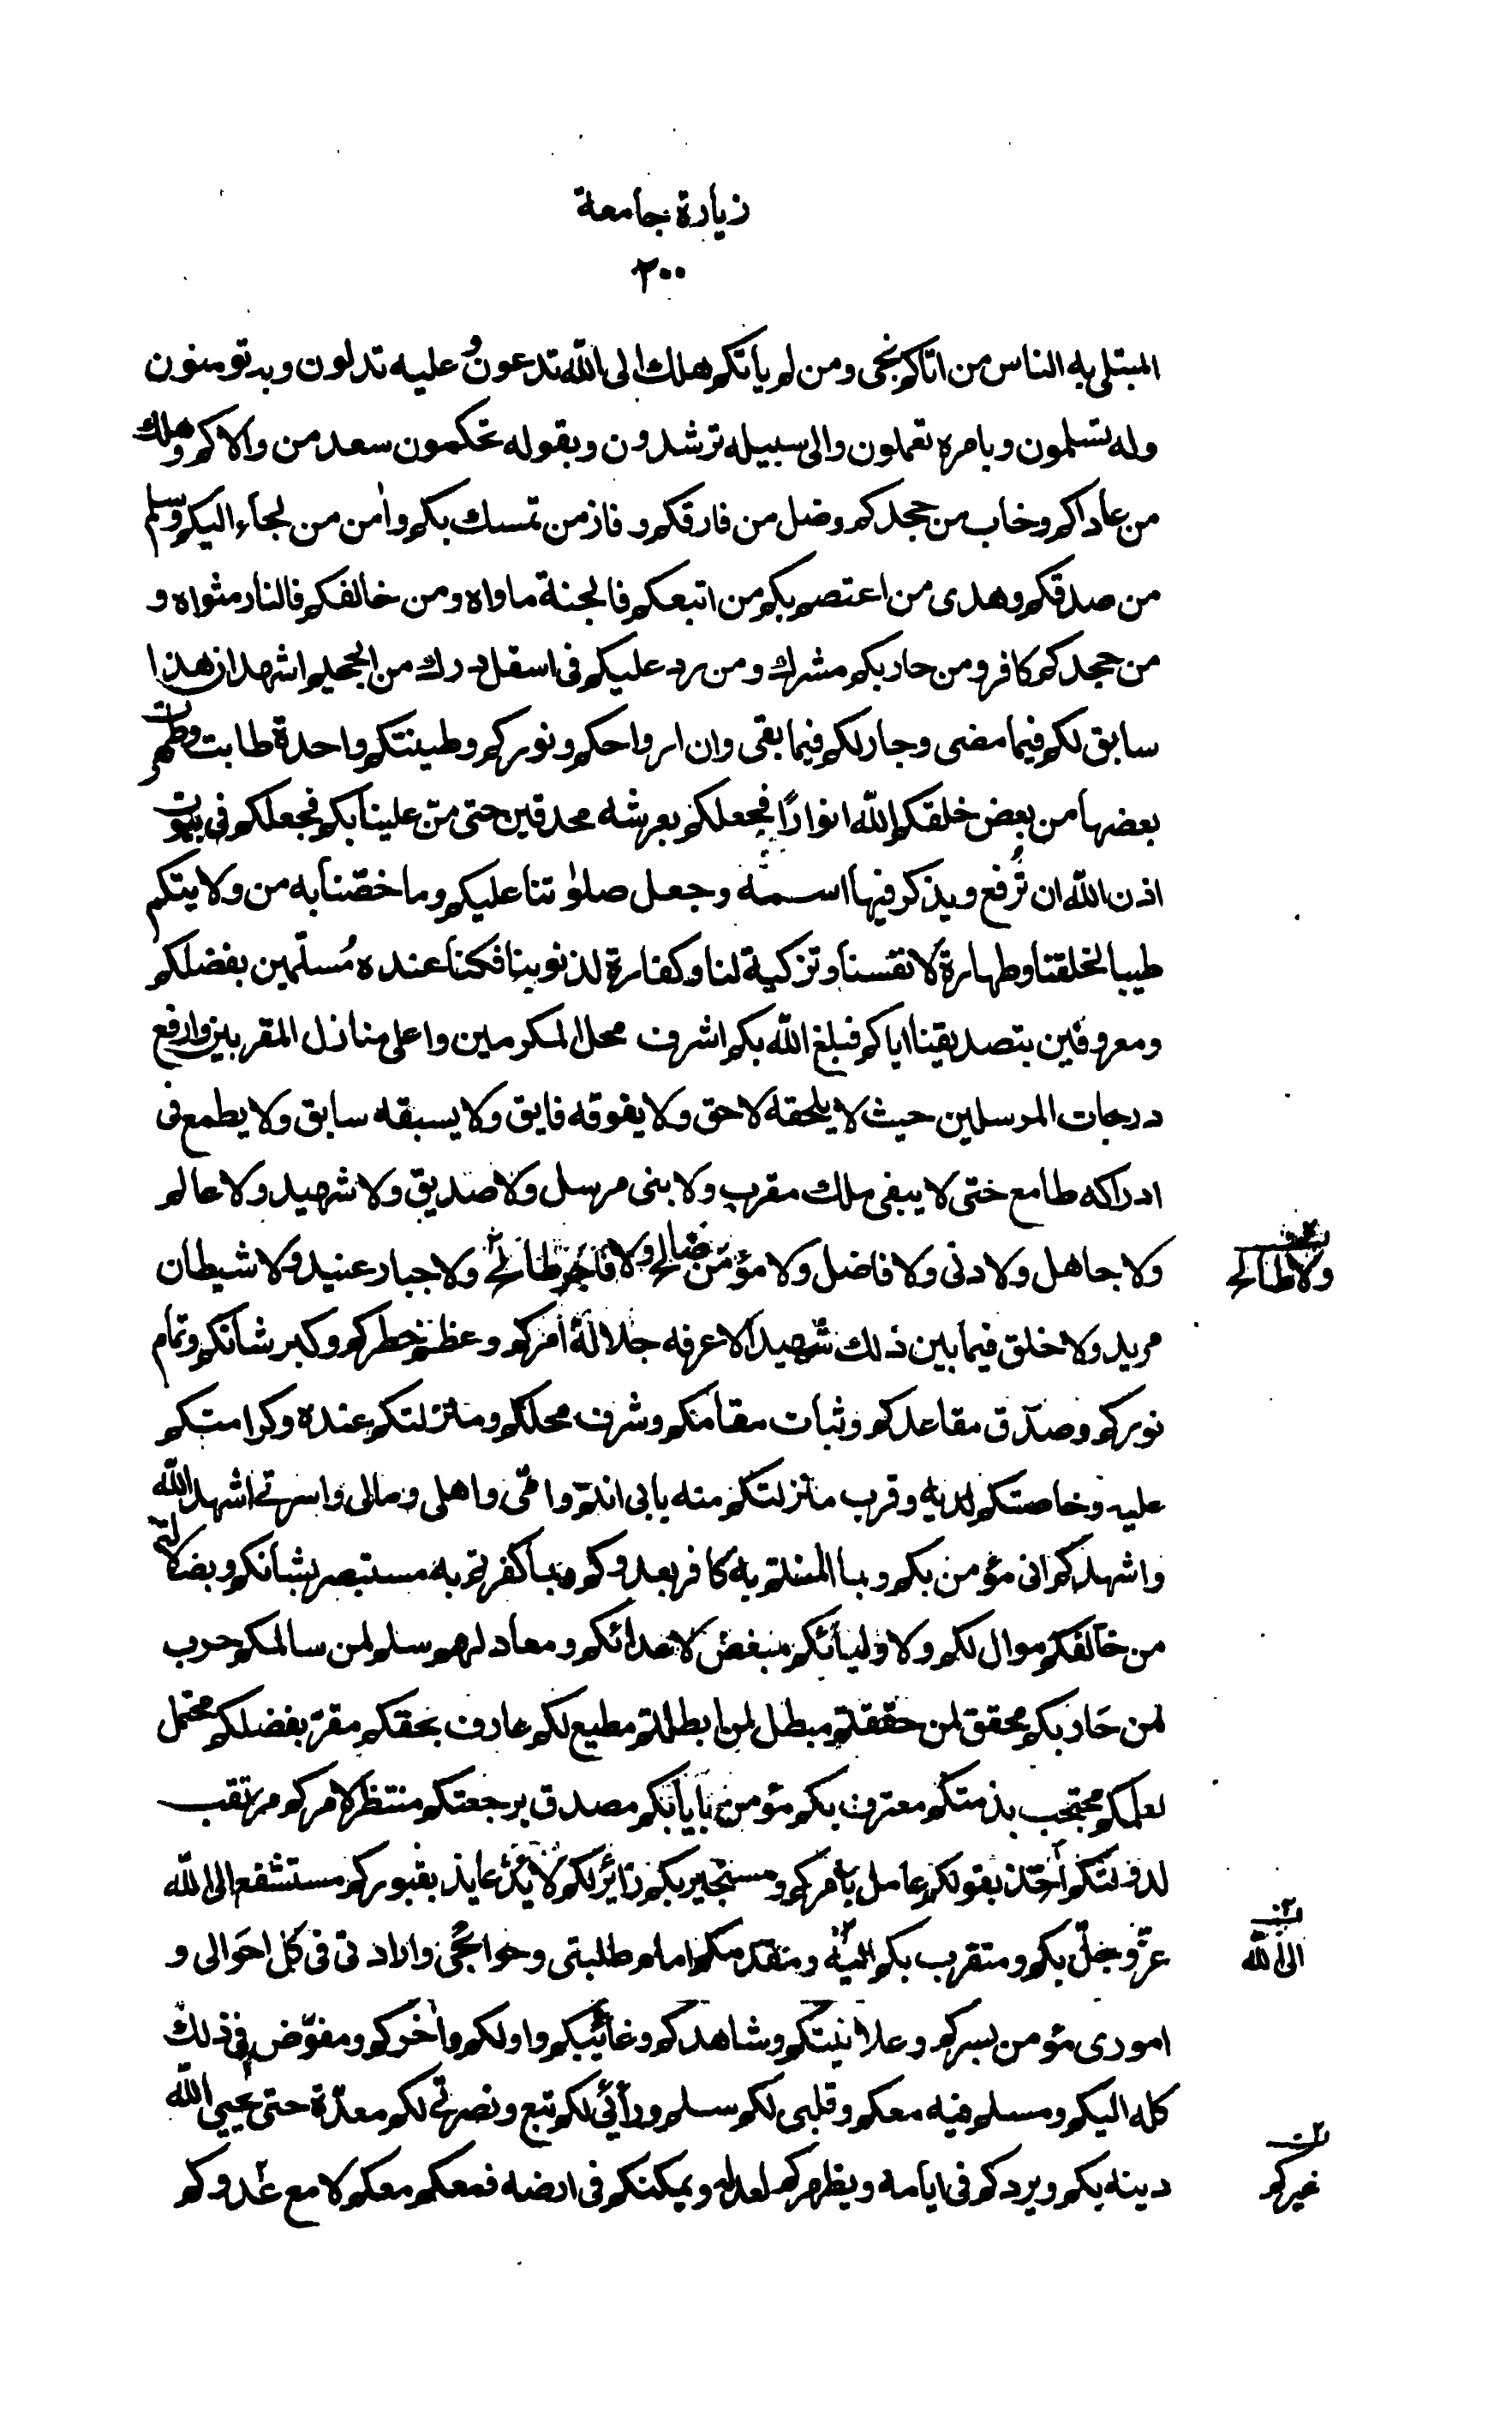 زيارة جامعة
٢٠٠
المبتلى به الناس من اتاكم نجى ومن لم ياتكم هلك الى الله تدعون وعليه تدلون وبه تومنون
وله تسلمون وبامره تعملون والى سبيله ترشدون وبقوله تحكمون سعد من والاكم وهلك
من عاداكم وخاب من جحدكم وضل من فارقكم وفاز من تمسك بكم وامن من لجاء اليكم وسلم
من صدقكم وهدى من اعتصم بكم من اتبعكم فالجنة ماواه ومن خالفكم فالنار مثواه و
من جحدكم كافر ومن حاربكم مشرك ومن رد عليكم فى اسفل درك من الجحيم اشهد ان هذا
سابق لكم فيما مضى وجار لكم فيما بقى وان ارواحكم ونوركم وطينتكم واحدة طابت وطهرت
بعضها من بعض خلقكم الله انوارًا فجعلكم بعرشه محدقين حتى منّ علينا بكم فجعلكم فى بيوت
اذن الله ان تُرفع ويذكر فيها اسمه وجعل صلوٰتنا عليكم وما خصّنا به من ولايتكم
طيبا لخلقتنا وطهارة لانفسنا وتزكية لنا وكفارة لذنوبنا فكنا عنده مُسلّمين بفضلكم
ومعروفين بتصديقنا اياكم فبلغ الله بكم اشرف محل المكرمين واعلى منازل المقربين وارفع
درجات المرسلين حيث لا يلحقه لاحق ولا يفوقه فايق ولا يسبقه سابق ولا يطمع فى
ادراكه طامع حتى لا يبقى ملك مقرب ولا نبى مرسل ولا صديق ولا شهيد ولا عالم
ولا جاهل ولا دنى ولا فاضل ولا مؤمن صالح ولا فاجر طالح ولا جبار عنيد ولا شيطان
ولا طالح
مريد ولا خلق فيما بين ذلك شهيد الا عرفه جلالة امركم وعظم خطركم وكبر شانكم وتمام
نوركم وصدق مقاعدكم وثبات مقامكم وشرف محلكم ومنزلتكم عنده وكرامتكم
عليه وخاصتكم لديه وقرب منزلتكم منه بابى انتم وامّى واهلى ومالى واسرتى اشهد الله
واشهدكم انى مؤمن بكم وبما امنتم به كافر بعدوكم وبما كفرتم به مستبصر بشانكم وبضلالة
من خالفكم موال لكم ولاوليائكم مبغض لاعدائكم ومعاد لهم سلم لمن سالمكم حرب
لمن حاربكم محقق لمن حققتم مبطل لمن ابطلتم مطيع لكم عارف بحقكم مقرّ بفضلكم محتمل
لعلمكم محتجب بذمتكم معترف بكم مؤمن بايابكم مصدق برجعتكم منتظر لامركم مرتقب
لدولتكم اخذ بقولكم عامل بامركم ومستجير بكم زائر لكم لائذ عايذ بقبوركم مستشفع الى الله
عزّ وجلّ بكم ومتقرب بكم اليه ومقدمكم امام طلبتى وحوائجى وارادتى فى كل احوالى و
الى الله
امورى مؤمن بسركم وعلانيتكم وشاهدكم وغائبكم واولكم واخركم ومفوّض فى ذلك
كله اليكم ومسلم فيه معكم وقلبى لكم سلم ورائى لكم تبع ونصرتى لكم معدّة حتى يحيى الله
دينه بكم ويردكم فى ايامه ويظهركم لعدله ويمكنكم فى ارضه فمعكم معكم لا مع عدوكم
غيركم